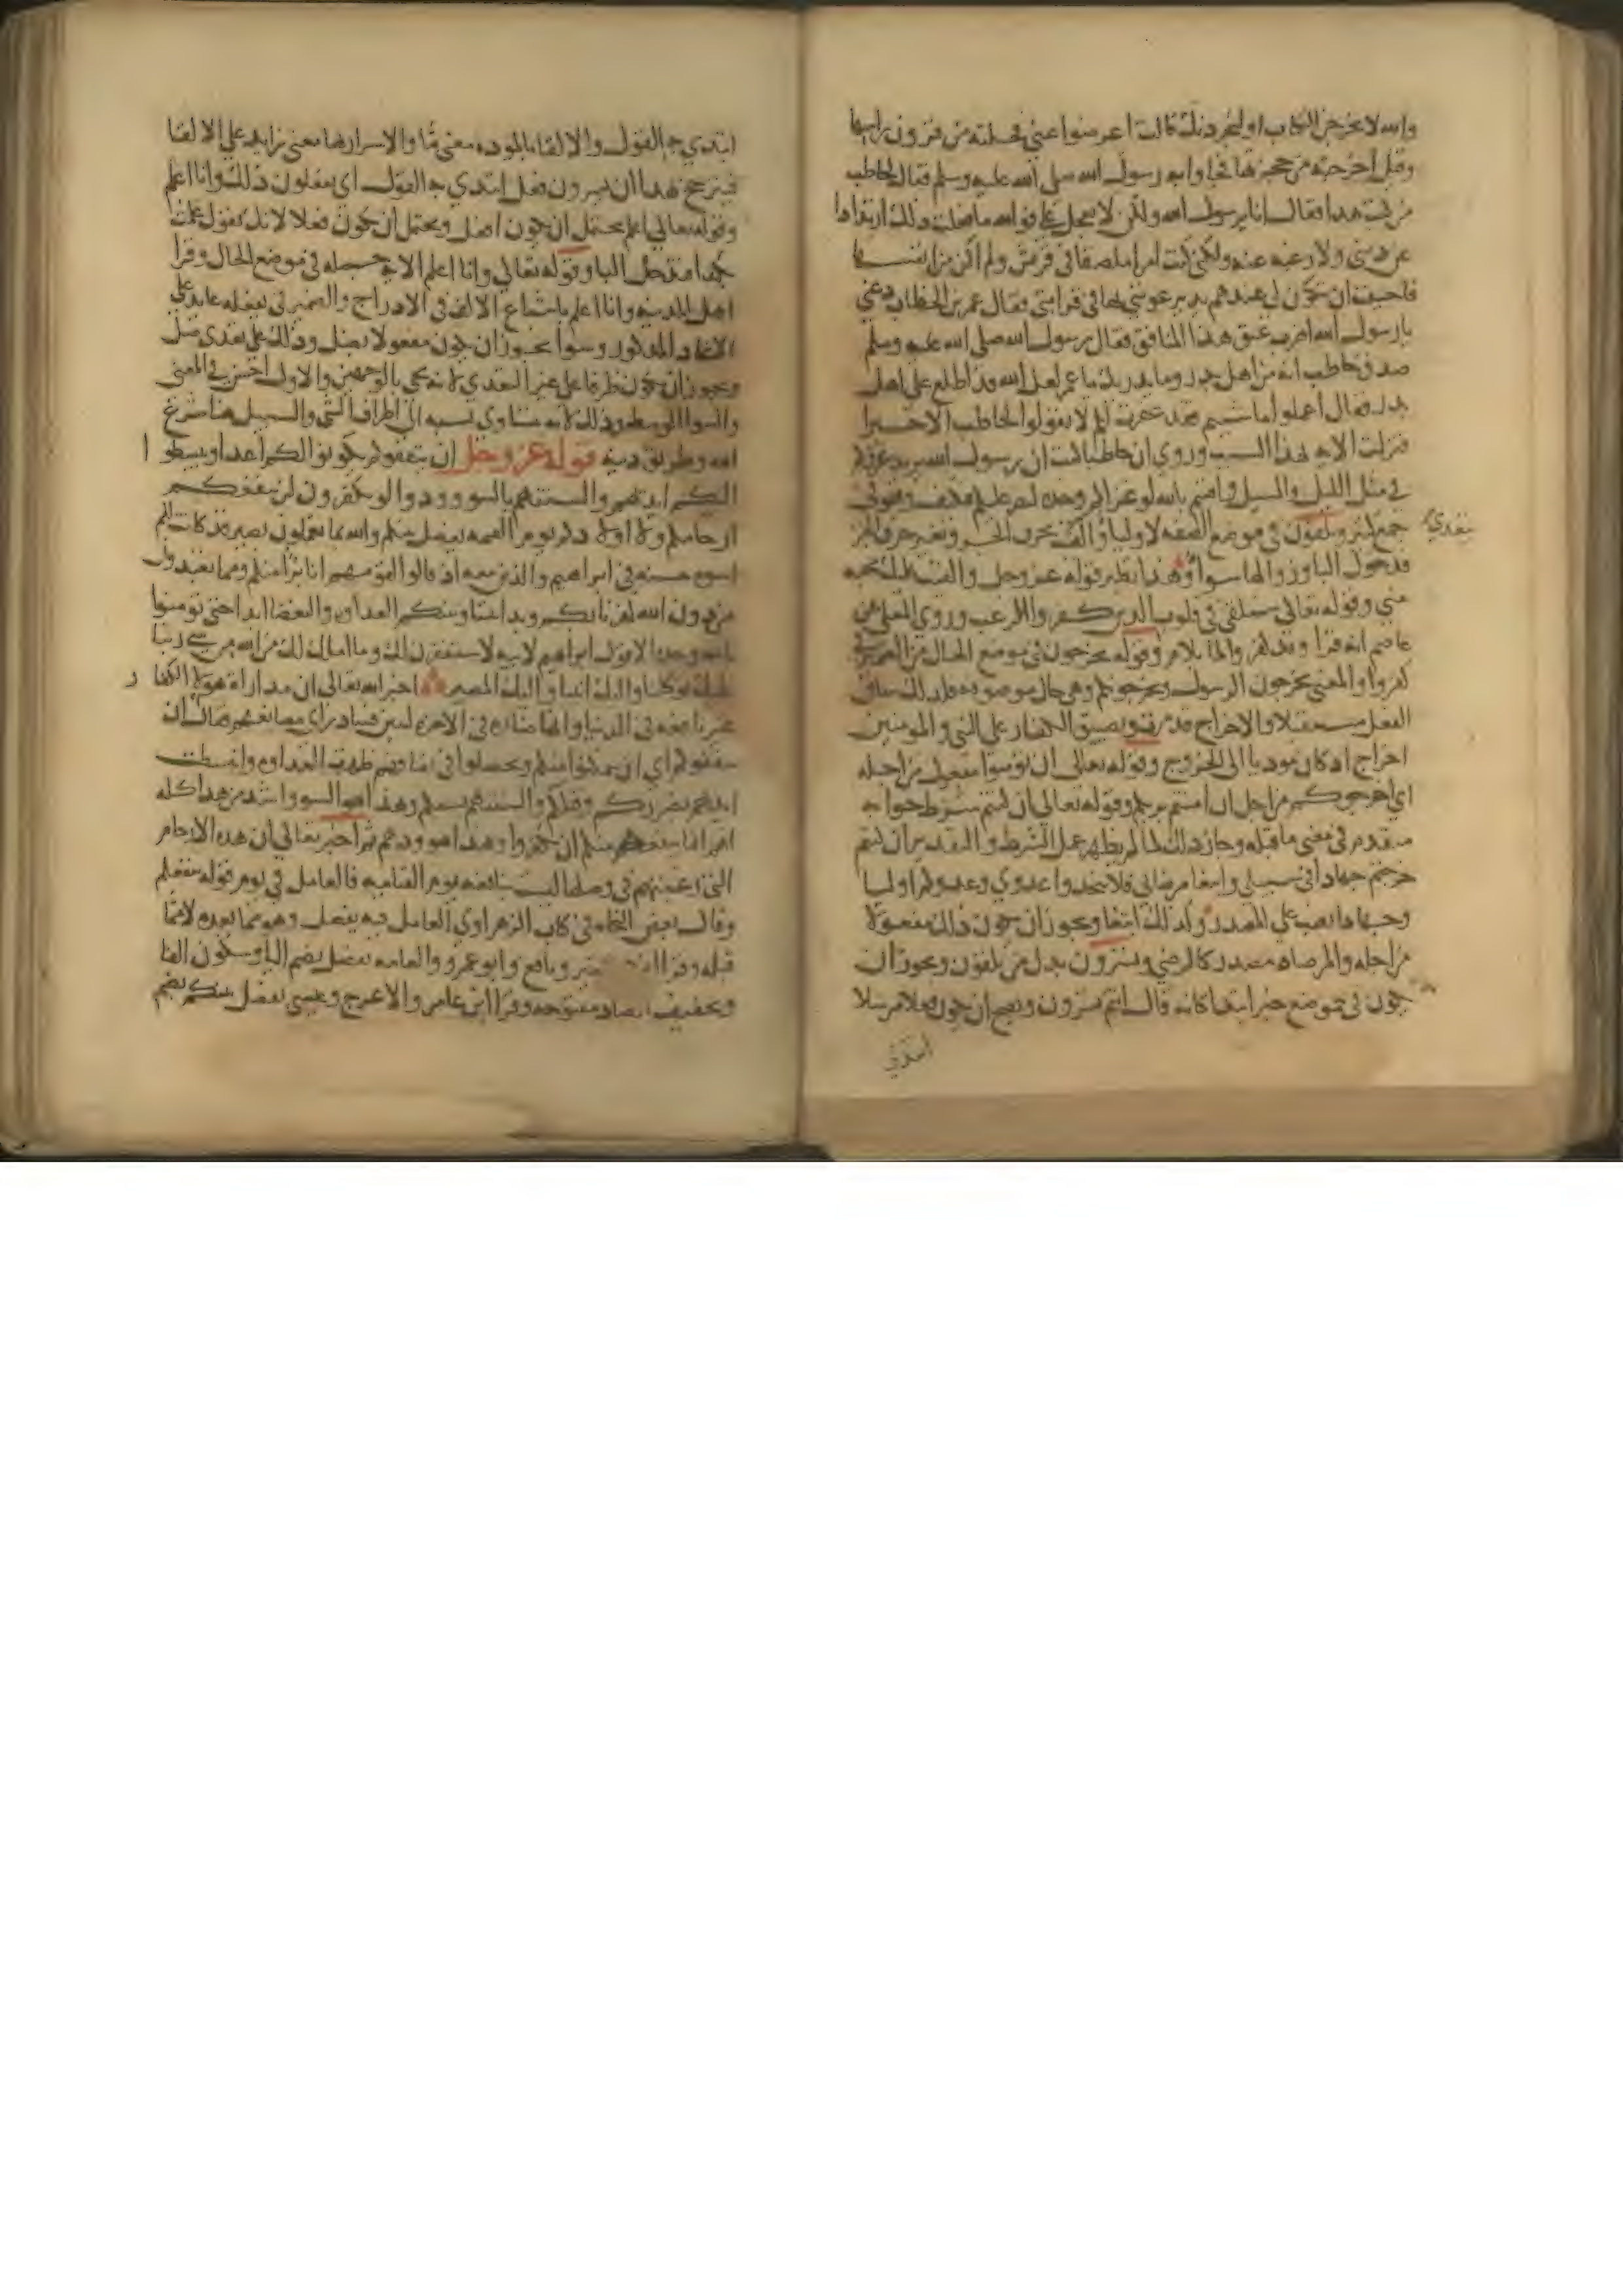 والله لا تخرجن الكتاب او لنجردنك قالت اعرضوا عني فحلته من قرون راسها
وقيل اخرجته من حجزتها فجاوا به رسول الله صلى الله عليه وسلم فقال لحاطب
من كتب هذا فقال انا يرسول الله ولكن لا تعجل علي فوالله ما فعلت ذلك ارتدادا
عن ديني ولا رغبه عنه ولكني كنت امرا ملصقا في قريش ولم اكن من انفسها
فاحببت ان تكون لي عندهم يد يرعونني بها في قرابتي فقال عمر بن الخطاب دعني
يا رسول الله اضرب عنق هذا المنافق فقال رسول الله صلى الله عليه وسلم
صدق حاطب انه من اهل بدر وما يدريك يا عمر لعل الله قد اطلع على اهل
بدر فقال اعملوا ما شيتم فقد غفرت لكم لا تقولوا لحاطب الا خيرا
فنزلت الايه بهذا السبب وروي ان حاطبا كتب ان رسول الله يريد غزوكم
في مثل الليل والسيل واقسم بالله لو غزاكم وحده لنصر عليكم فكيف وهو في
جمع كثير وتلقون في موضع الصفه لاوليا والقيت بحرف الجر وبغير حرف الجر
تتعدي
فدخول البا وزوالها سوا وهذا نظير قوله عز وجل والقيت عليك محبه
مني وقوله تعالى سنلقي في قلوب الذين كفروا الرعب وروي المعلى عن
عاصم انه قرا وقد كفروا لما بلام وقوله يخرجون في موضع الحال من الضمير في
كفروا والمعنى يخرجون الرسول ويخرجونكم وهي حال موصوفه فلذلك ساق
الفعل مستقبلا والاخراج قد مضى وتضييق الكفار على النبي والمومنين
اخراج اذ كان موديا الى الخروج وقوله تعالى ان تومنوا مفعول من اجله
اي اخرجوكم من اجل ان امنتم بربكم وقوله تعالى ان كنتم شرط جوابه
متقدم في معنى ما قبله وجاز ذلك لما لم يظهر عمل الشرط والتقدير ان كنتم
خرجتم جهادا في سبيلي وابتغا مرضاتي فلا تتخذوا عدوي وعدوكم اوليا
وجهادا نصب على المصدر وكذلك ابتغا ويجوز ان يكون ذلك مفعولا
من اجله والمرضاه مصدر كالرضى وتسرون بدل من تلقون ويجوز ان
يكون في موضع خبر ابتدا كانه قال انتم تسرون ويصح ان يكون فعلا مرسلا
ابتدي
ابتدي به القول والالقا بالموده معنى ما والاسرار بها معنى زايد على الالقا
فيترجح بهذا ان تسرون فعل ابتدي به القول اي تفعلون ذلك وانا اعلم
وقوله تعالى اعلم يحتمل ان يكون افعل ويحتمل ان يكون فعلا لانك تقول علمت
بكذا فتدخل البا وقوله تعالى وانا اعلم الايه جمله في موضع الحال وقرا
اهل المدينه وانا اعلم باشباع الالف في الادراج والضمير في يفعله عايد على
الاتخاذ المذكور وسوا يجوز ان يكون مفعولا بضل وذلك على تعدي ضل
ويجوز ان يكون ظرفا على غير التعدي لانه يجي بالوجهين والاول احسن في المعنى
والسوا الوسط وذلك لانه تتساوى نسبه الى اطراف الشي والسبيل هنا شرع
الله وطريق دينه قوله عز وجل ان يثقفوكم يكونوا لكم اعداء ويبسطوا
اليكم ايديهم والسنتهم بالسوء وودوا لو تكفرون لن تنفعكم
ارحامكم ولا اولادكم يوم القيمه يفصل بينكم والله بما تعملون بصير قد كانت لكم
اسوة حسنه في ابراهيم والذين معه اذ قالوا لقومهم انا برآ منكم ومما تعبدون
من دون الله كفرنا بكم وبدا بيننا وبينكم العداوه والبغضا ابدا حتى تومنوا
بالله وحده الا قول ابراهيم لابيه لاستغفرن لك وما املك لك من الله من شي ربنا
عليك توكلنا واليك انبنا واليك المصير اخبر الله تعالى ان مداراة هولا الكفار
غير نافعه في الدنيا وانها ضاره في الاخره ليبين فساد راي مصانعهم فقال ان
يثقفوكم اي ان يتمكنوا منكم وتحصلوا في ثقافهم ظهرت العداوه وانبسطت
ايديهم بضرركم وقتلكم والسنتهم بسبكم وهذا هو السو واشد من هذا كله
انهم انما يقنعهم منكم ان تكفروا وهذا هو ودهم ثم اخبر تعالى ان هذه الارحام
التي رغبتهم في وصلها ليست بنافعه يوم القيامه فالعامل في يوم قوله تنفعكم
وقال بعض النحاه في كتاب الزهراوي العامل فيه يفصل وهو مما بعده لا مما
قبله وقرا ابن كثير ونافع وابو عمرو والعامه يفصل بضم اليا وسكون الفا
وتخفيف الصاد مفتوحه وقرا ابن عامر والاعرج وعيسى يفصل بينكم بضم